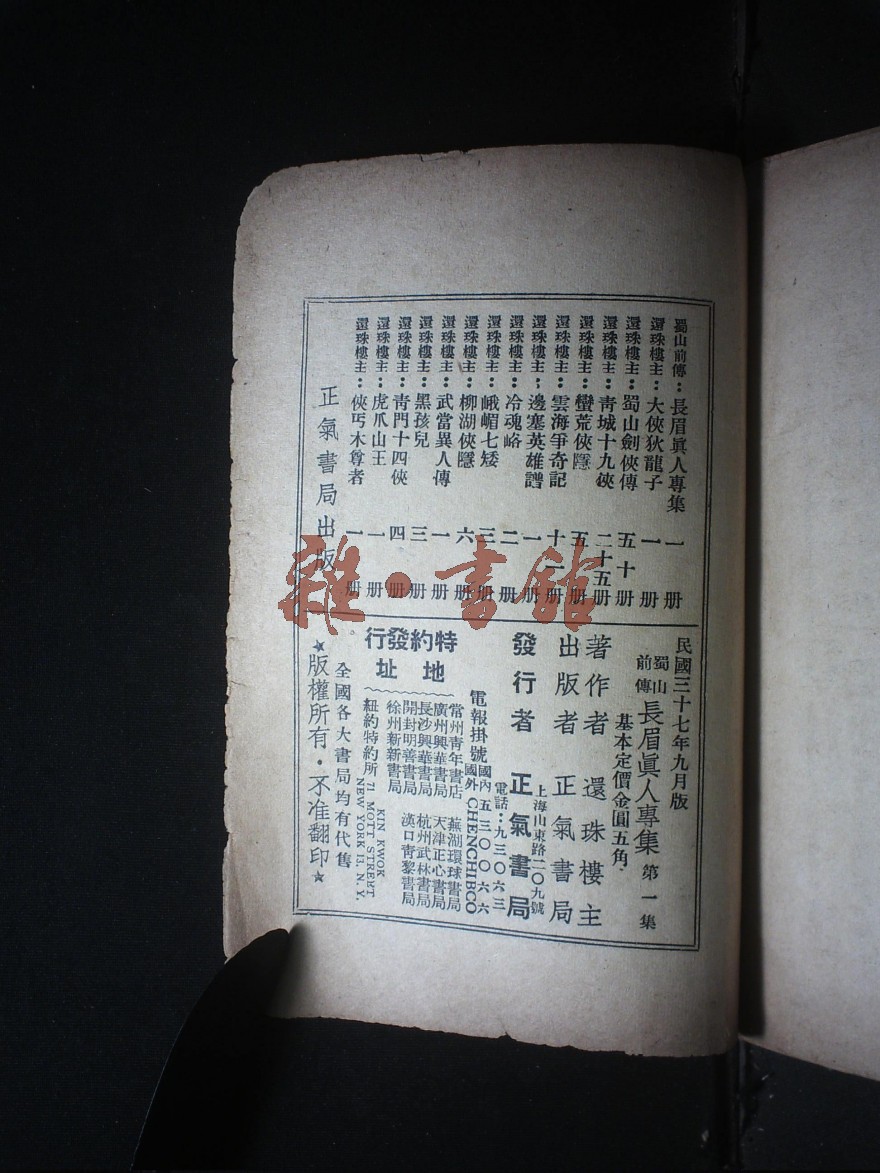 蜀山前傳：長眉眞人專集 一册
還珠樓主：大俠狄龍子 一册
還珠樓主：蜀山劍俠傳 五十册
還珠樓主：青城十九俠 二十五册
還珠樓主：蠻荒俠隱 五册
還珠樓主：雲海爭奇記 十一册
還珠樓主：邊塞英雄譜 一册
還珠樓主：冷魂峪 二册
還珠樓主：峨嵋七矮 三册
還珠樓主：柳湖俠隱 六册
還珠樓主：武當異人傳 一册
還珠樓主：黑孩兒 三册
還珠樓主：青門十四俠 四册
還珠樓主：虎爪山王 一册
還珠樓主：俠丐木尊者 一册
正氣書局出版
民國三十七年九月版
蜀山前傳 長眉眞人專集 第一集
基本定價金圓五角·
著作者 還珠樓主
出版者 正氣書局
上海山東路二〇九號
發行者 正氣書局
電話：九三〇六三
電報掛號 國內 五三〇〇六六
國外 CHENCHIBCO
特約發行地址
常州靑年書店 蕪湖環球書局
廣州興華書局 天津正心書局
長沙興華書局 杭州武林書局
開封明善書局 漢口靑黎書局
徐州新新書局
紐約特約所 KIN KWOK
71 MOTT STREET
NEW YORK 13. N. Y.
全國各大書局均有代售
★版權所有·不准翻印★
雜·書館